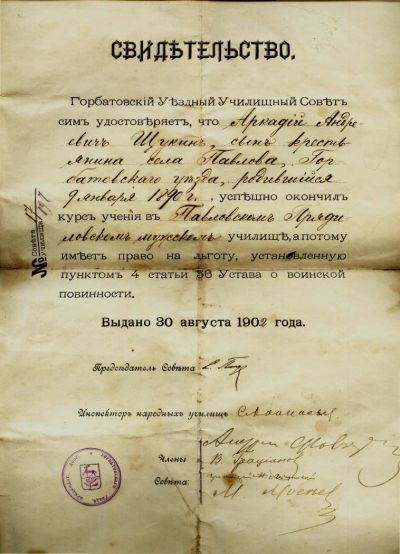 СВИДѢТЕЛЬСТВО.
Горбатовскій Уѣздный Училищный Совѣтъ
симъ удостовѣряетъ, что Аркадій Андре-
евичъ Щукинъ, сынъ кресть-
янина села Павлова, Гор-
батовскаго уѣзда, родившійся
9 января 1890 г., успѣшно окончилъ
курсъ ученія въ Павловскомъ
мужскомъ училищѣ, а потому
имѣетъ право на льготу, установленную
пунктомъ 4 статьи 56 Устава о воинской
повинности.
№ Совѣта 17
Училища
Выдано 30 августа 1902 года.
Предсѣдатель Совѣта
Инспекторъ народныхъ училищъ
Члены
Совѣта: